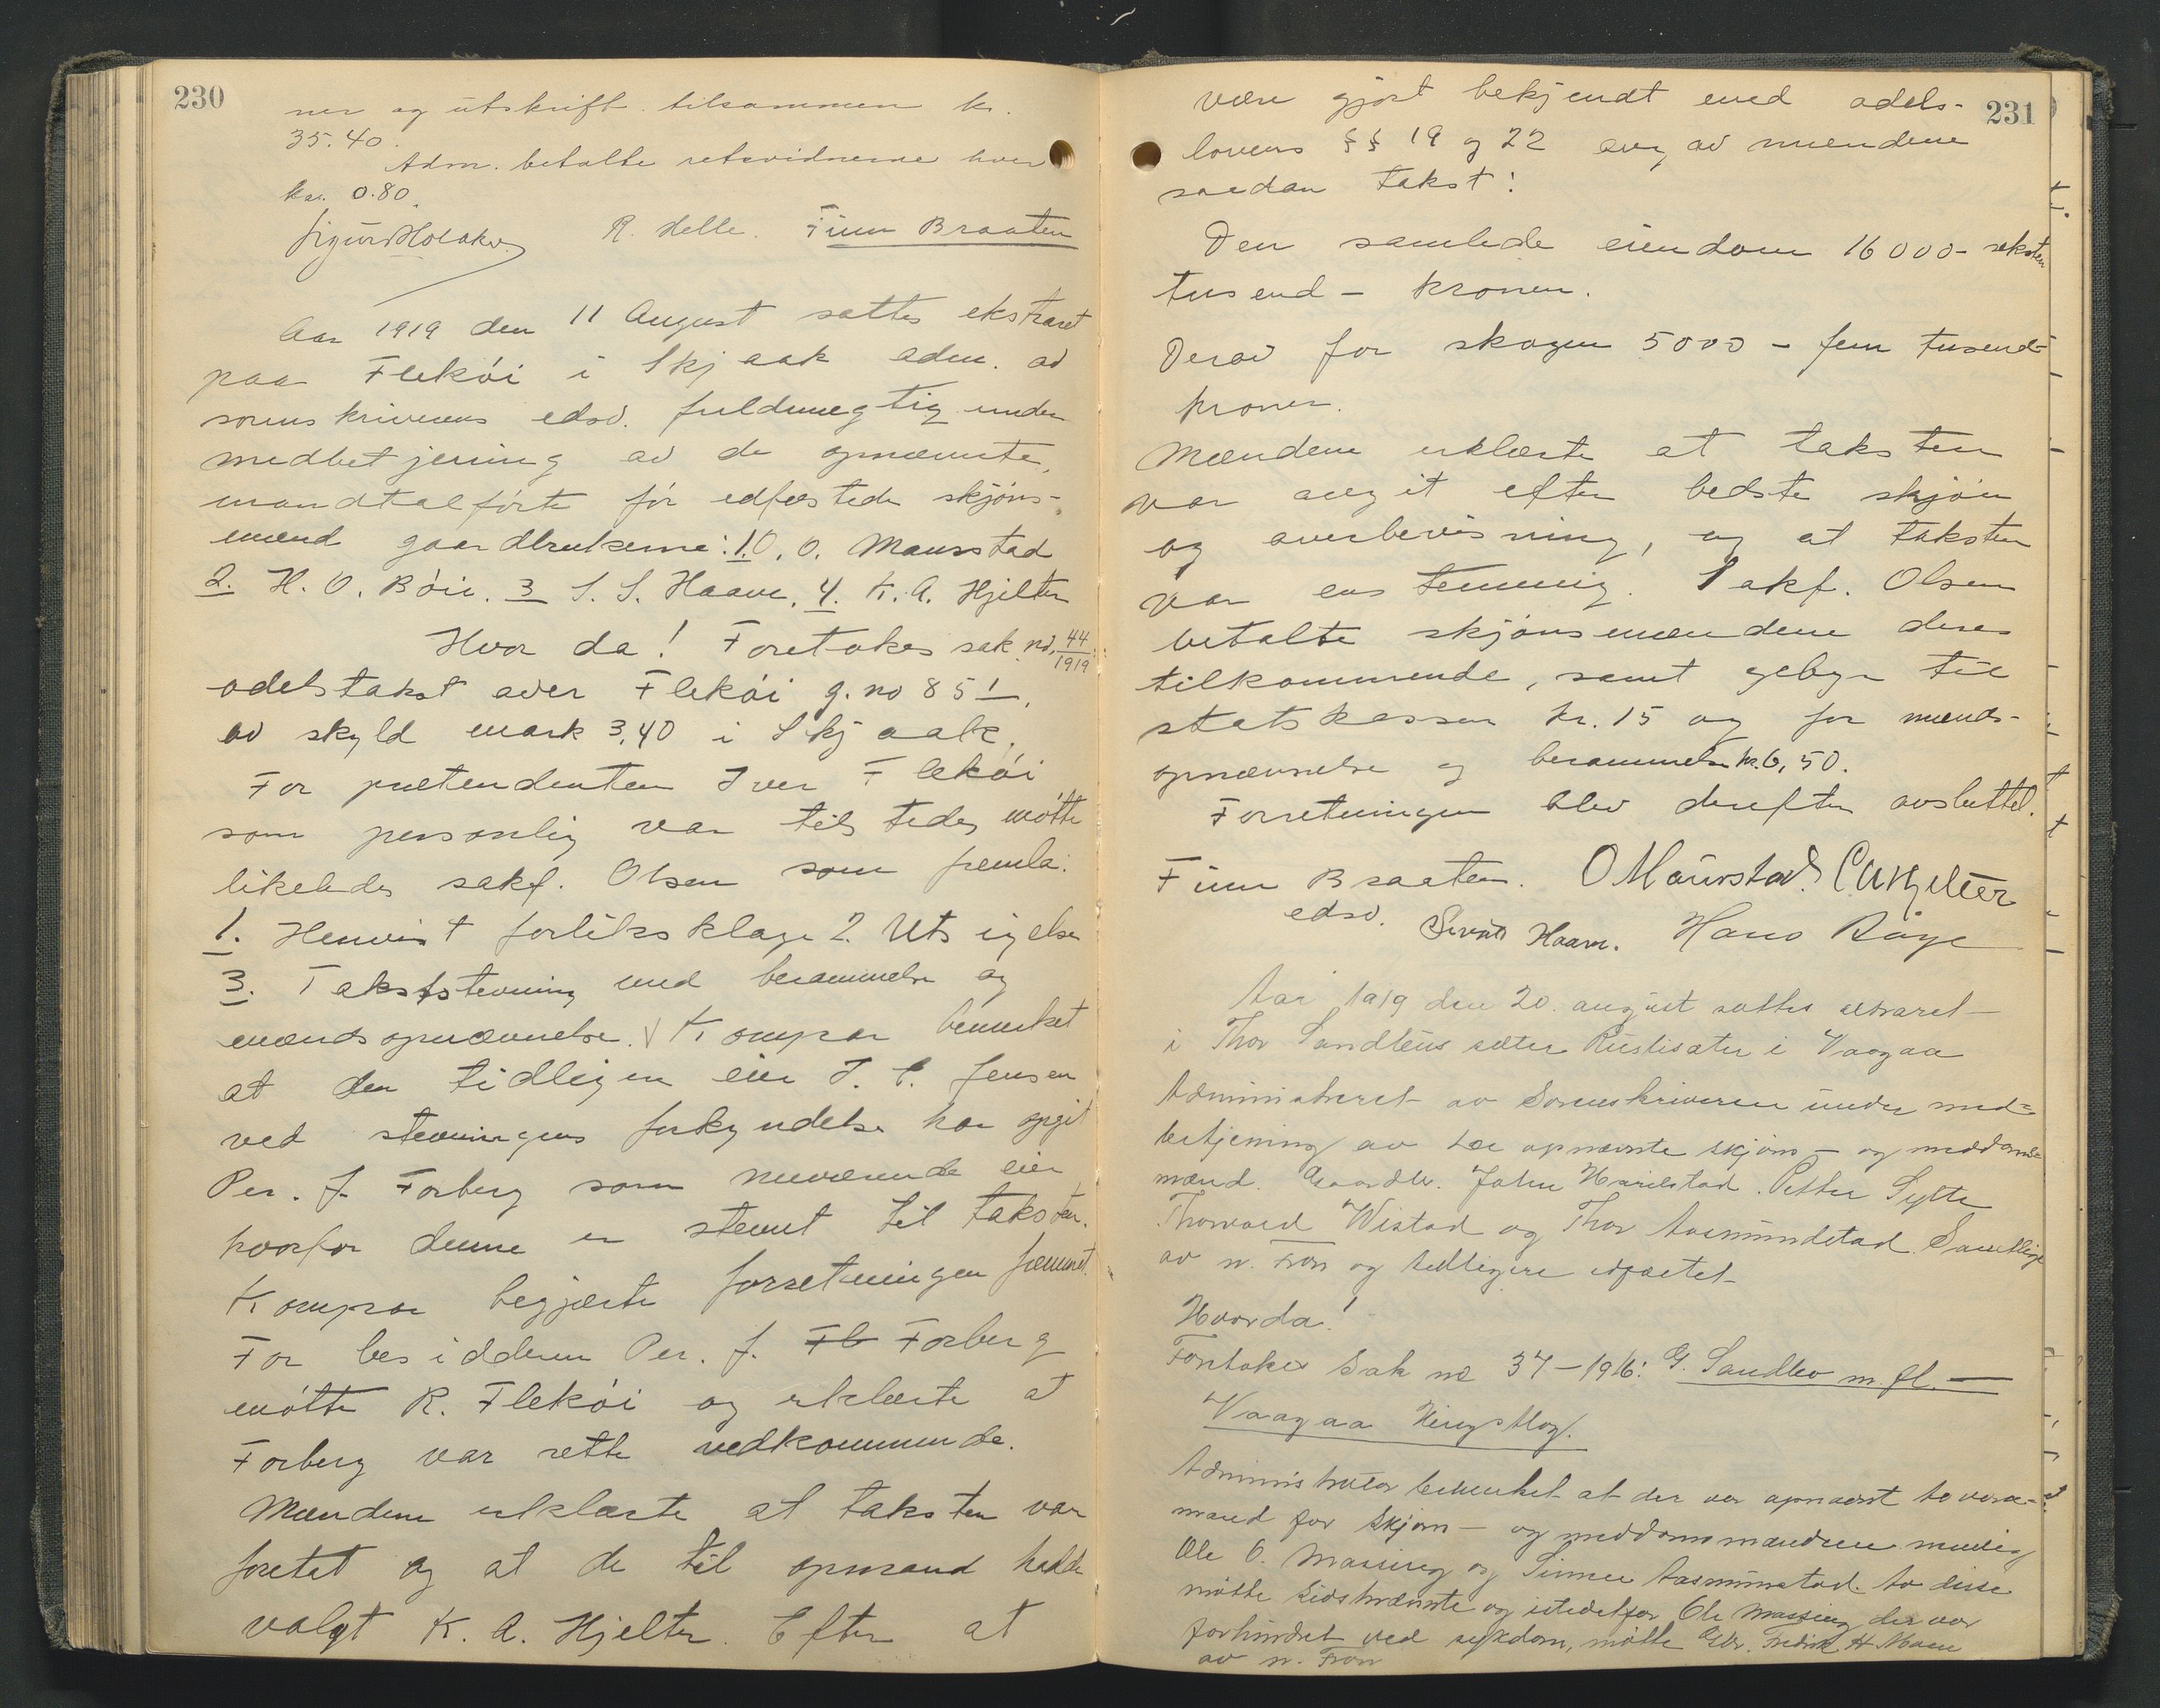 230
ner og utskrift tilsammen kr.
35.40.
Adm. betalte retsvidnerne hver
kr. 0.80.
R. Helle. Finn Braaten
Aar 1919 den 11 August sattes ekstraret
paa Flekøi i Skjaak adm. av
sorenskriverens edsv. fuldmegtig under
medbetjening av de opnævnte,
mandtalførte før edfæstede skjøns-
mænd gaardbrukerne: 1. O. O. Maurstad
2. H. O. Böie. 3 S. S. Haave. 4. K. A. Hjelter
Hvor da! Foretokes sak no. 44/1919:
odelstakst over Flekøi g. no 85 1,
av skyld mark 3,40 i Skjaak.
For prætendenten Iver Flekøi
som personlig var tilstede, møtte
likeledes sakf. Olsen som fremla:
1. Henvist forliksklage 2. Utsigelse
3. Takststevning med berammelse og
mændsopnævnelse. Kompar. bemerket
at den tidligere eier J. C. Jensen
ved stevningens forkyndelse har opgit
Per. J. Forberg som nuværende eier,
hvorfor denne er stevnt til taksten.
Kompar begjærte forretningen fremmet.
For besidderen Per. J. Fl Forberg
møtte R. Flekøi og erklærte at
Forberg var rette vedkommende.
Mændene erklærte at taksten var
foretat og at de til opmand hadde
valgt K. A. Hjelter. Efter at
231
være gjort bekjendt med odels-
lovens §§ 19 og 22 avg. av mændene
saadan takst:
Den samlede eiendom 16000 - seksten
tusend - kroner.
Derav for skogen 5000 - fem tusend -
kroner.
Mændene erklærte at taksten
var avgit efter bedste skjøn
og overbevisning, og at taksten
var enstemmig. Sakf. Olsen
betalte skjønsmændene deres
tilkommende, samt gebyr til
statskassen kr. 15 og for mænds-
opnævnelse og berammelse kr. 6,50.
Forretningen blev derefter avsluttet.
Finn Braaten. O Maurstad.
edsv. Sivert Haave. Hans Böye
Aar 1919 den 20. august sattes
i Thor Sandbus sæter Rustisæter i Vaagaa
Administreret av Sorenskriveren under med-
betjening av de opnævnte skjøns - og meddoms-
mænd. Gaardbr. John Harildstad. Petter Sylte
Thorvald Wistad og Thor Aasmundstad. Samtlige
av n. Fron og tidligere edfæstet.
Hvorda!
Foretokes Sak no 37 - 1916: G. Sandbo m. fl. -
Vaagaa
Administrator bemerket at der var opnævnt to vara-
mænd for skjøns - og meddomsmændene nemlig
Ole O. Massing og Aasmundstad. Av disse
møtte sidstnævnte og istedetfor Ole Massing der var
forhindret ved sykdom, møtte Gbr. Fredrik H. Moen
av n. Fron